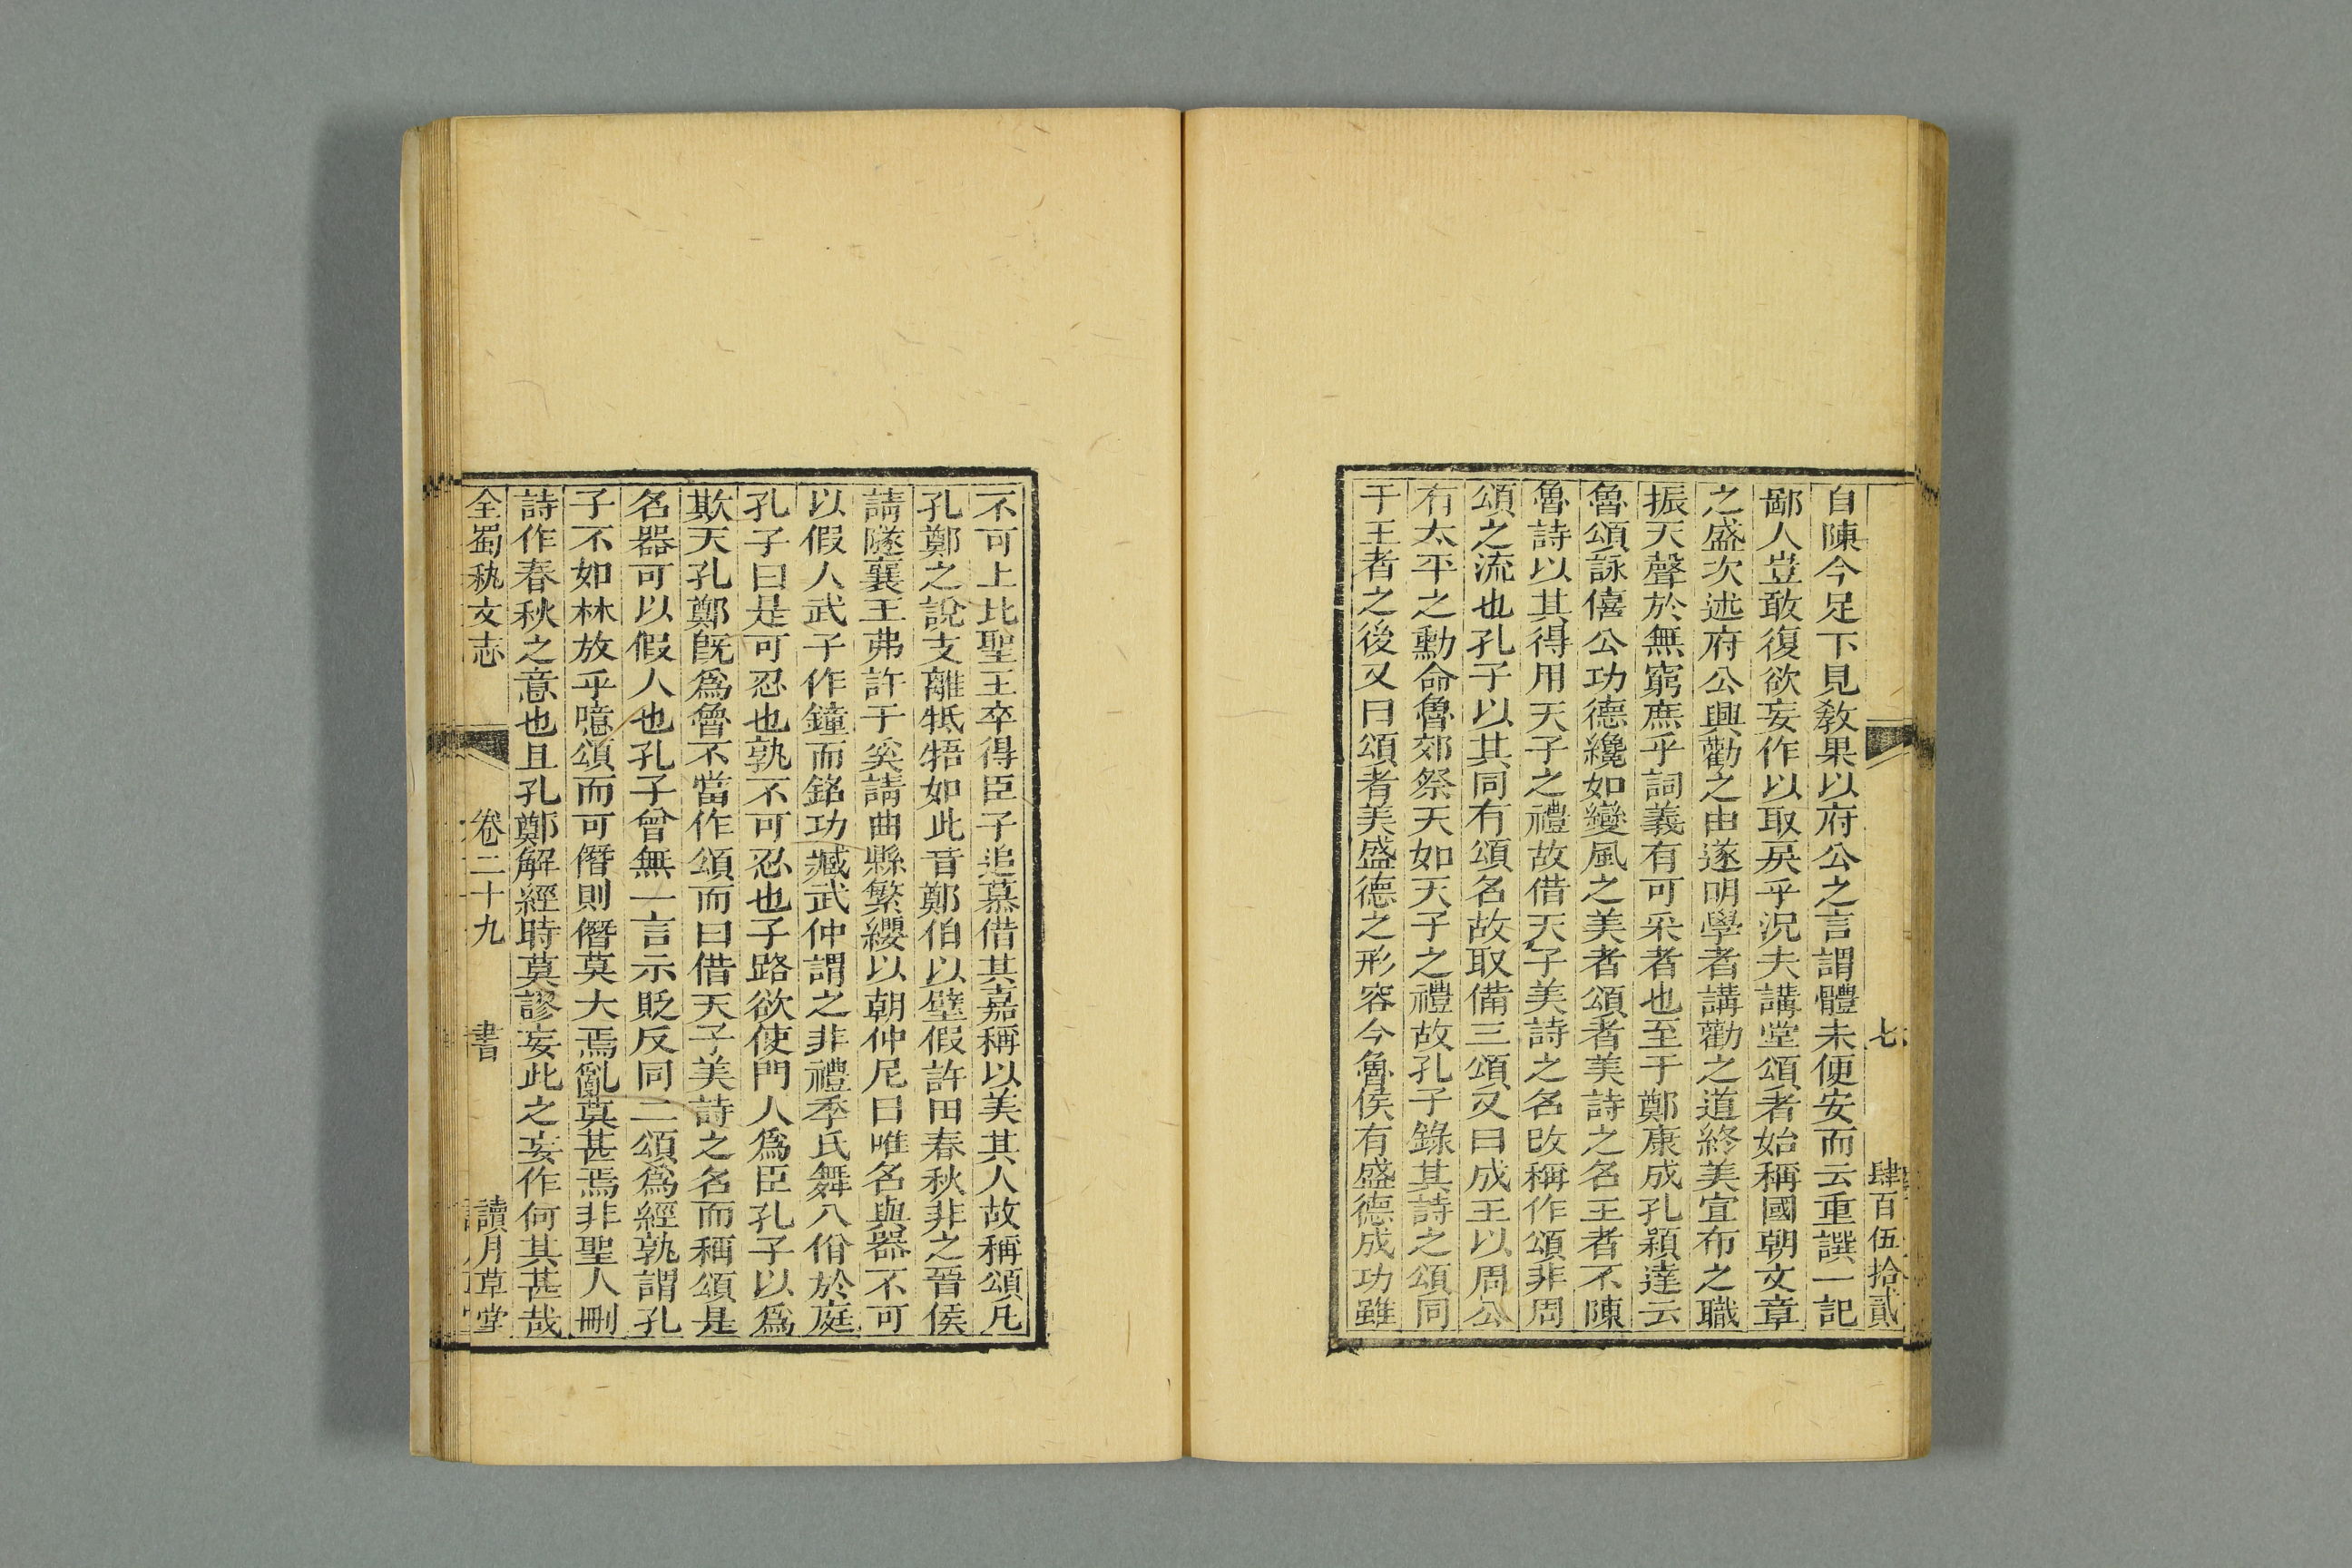 七 肆百伍拾貳
自陳今足下見敎果以府公之言謂體未便安而云重譔一記
鄙人豈敢復欲妄作以取戾乎況夫講堂頌者始稱國朝文章
之盛次述府公興勸之由遂明學者講勸之道終美宣布之職
振天聲於無窮庶乎詞義有可采者也至于鄭康成孔穎達云
魯頌詠僖公功德纔如變風之美者頌者美詩之名王者不陳
魯詩以其得用天子之禮故借天子美詩之名改稱作頌非周
頌之流也孔子以其同有頌名故取備三頌又曰成王以周公
有太平之勳命魯郊祭天如天子之禮故孔子錄其詩之頌同
于王者之後又曰頌者美盛德之形容今魯侯有盛德成功雖
不可上比聖王卒得臣子追慕借其嘉稱以美其人故稱頌凡
孔鄭之說支離牴牾如此昔鄭伯以璧假許田春秋非之晉侯
請隧襄王弗許于奚請曲縣繁纓以朝仲尼曰唯名與器不可
以假人武子作鐘而銘功臧武仲謂之非禮季氏舞八佾於庭
孔子曰是可忍也孰不可忍也子路欲使門人爲臣孔子以爲
欺天孔鄭旣爲魯不當作頌而曰借天子美詩之名而稱頌是
名器可以假人也孔子曾無一言示貶反同二頌爲經孰謂孔
子不如林放乎噫頌而可僭則僭莫大焉亂莫甚焉非聖人刪
詩作春秋之意也且孔鄭解經時莫謬妄此之妄作何其甚哉
全蜀秇文志 卷二十九 書 讀月草堂